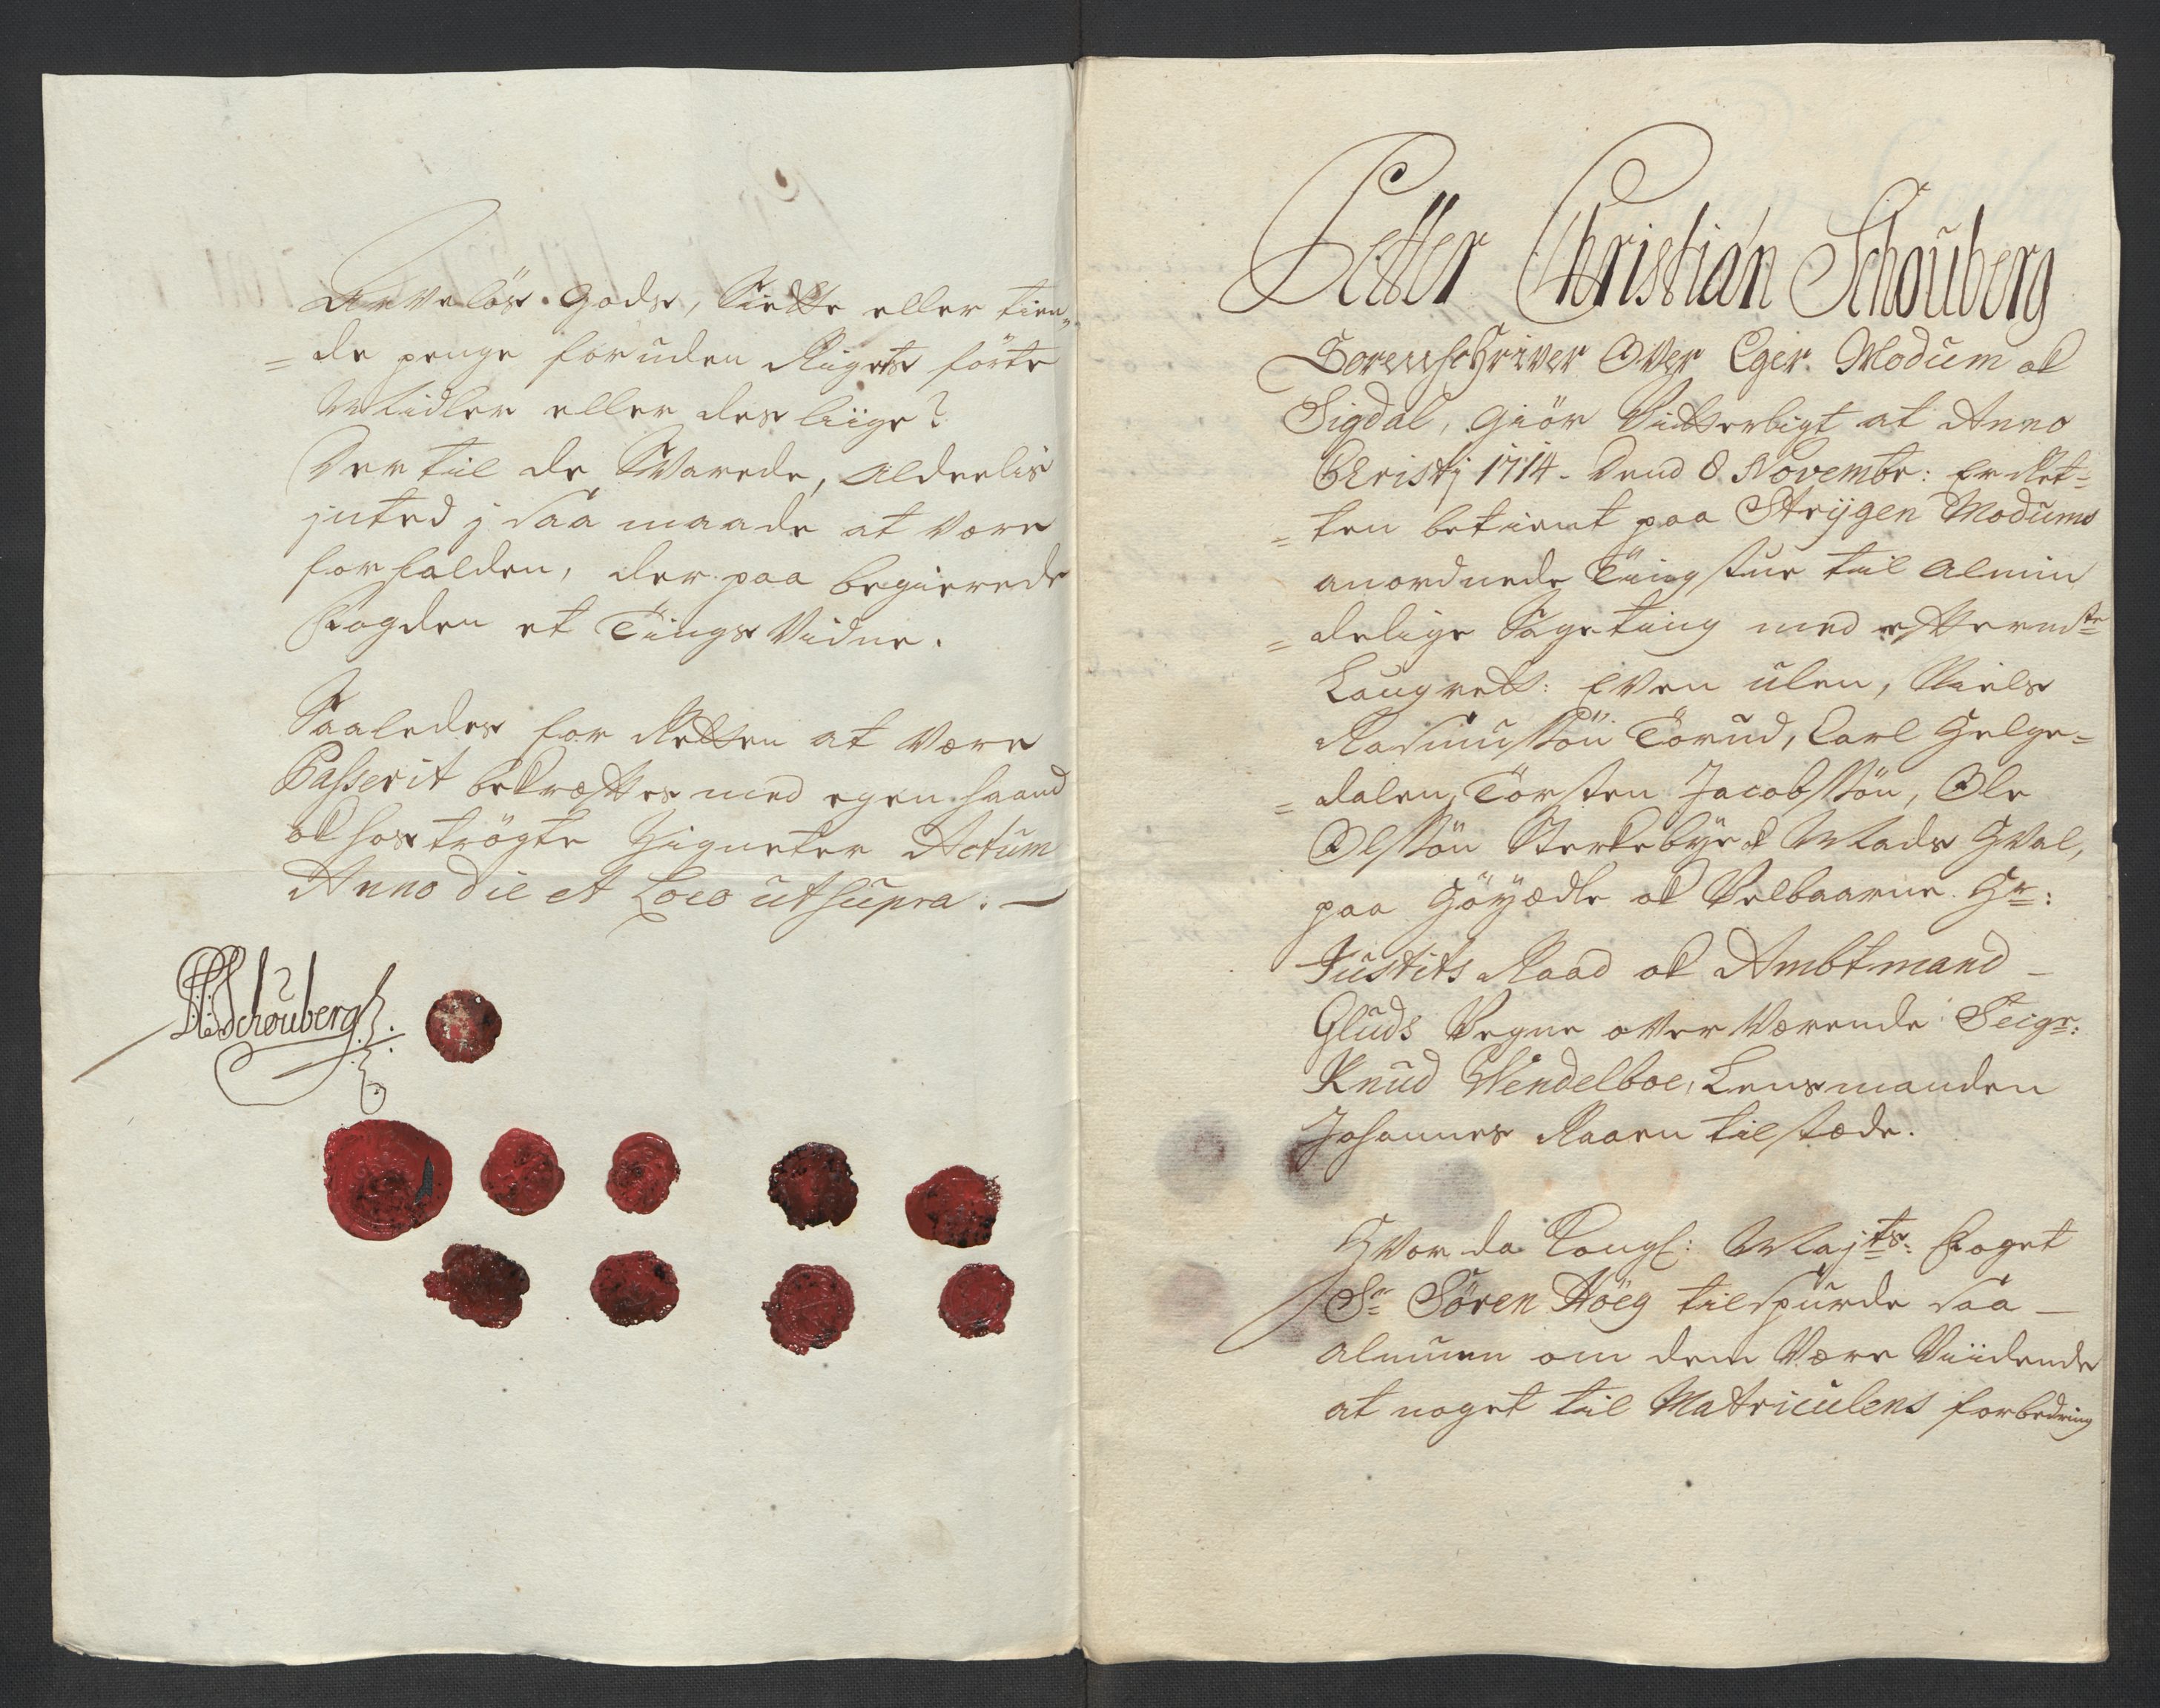 Arveløs Gods, Siette eller tien-
= de penge foruden Rigets førte
Midler eller desliige?
Der til de Svarede, Aldeelis
inted j saa maade at være
forfalden, der paa begierede
Fogden et Tings Vidne.
Saaledes for Retten at være
Passerit bekræfftes med egen haand
ok hoströgte Zigneter Actum
Anno die et Loco ut supra. —
Schouberg
Petter Christian Schouberg
Sorenschriver Over Eger. Modum ok
Sigdal, giör Vitterligt at Anno
Christj 1714. Dend 8 Novembr: er Ret-
= ten betient paa Strygen Modums
anordnede Tingstue til Almin
= delige Sageting med effterm̄te
Laugrett: Even ulen, Niels
Rasmussön Torud, Carl Helge-
= dalen, Torsten Jacobssön, Ole
Olssön Sterkebye ok Mads Hval,
paa Höyædle ok Velbaarne Hr:
Justits Raad ok Ambtmand —
Gluds Vegne over Værende Seigr:
Knud Wendelboe, Lensmanden
Johannes Raaen tilstæde.
Hvor da Kongl: Majts: Foget
Sr Sören Höeg tilspurde saa —
Almuen om dem Være Viidende
at noget til Matriculens forbedring